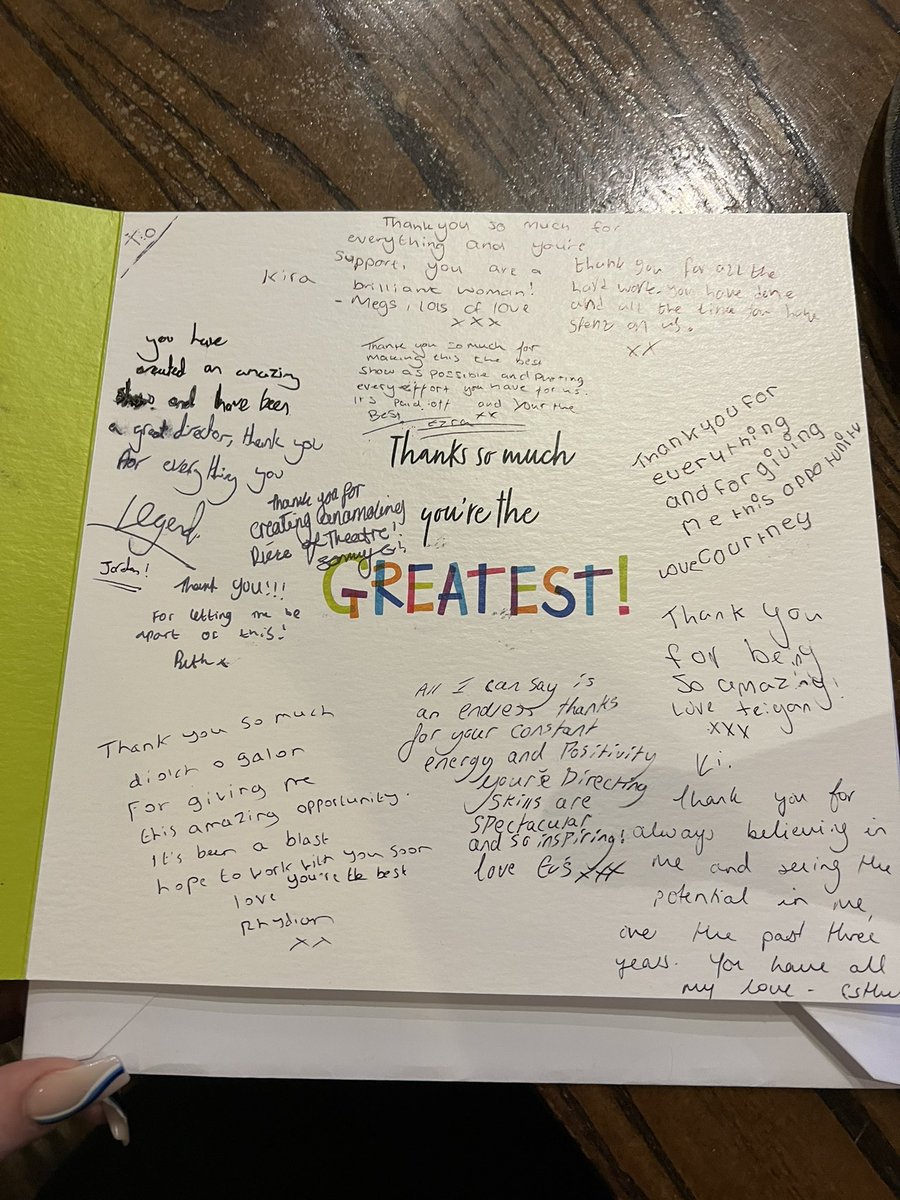 X:O
Kira
Thankyou so much for
everything and you're
support, you are a
brilliant woman!
- Megs, lots of love
xxx
thank you for all the
hard work you have done
and all the time you have
on us.
xx
you have
created an amazing
show and have been
a great director, thank you
for everything you
Legend.
Jordan!
Thank you so much for
making this the best
show as possible and putting
every effort you have for us.
It's paid off and your the
Best xx
Ezra
Thanks so much
you're the
GREATEST!
thank you for
creating
Piece of Theatre!
Thankyou for
everything
and for giving
me this opportunity
love Courtney
Thank you!!!
For letting me be
apart of this!
Beth x
Thank you
for being
so amazing!
love teigan
xxx
Thank you so much
diolch o galon
For giving me
this amazing opportunity.
It's been a blast
hope to work with you soon
love you're the best
Rhydian
xx
All I can say is
an endless thanks
for your constant
energy and Positivity
you're Directing
skills are
spectacular
and so inspiring!
love
Vi.
Thank you for
always believing in
me and seeing the
potential in me,
over the past three
years. You have all
my love -